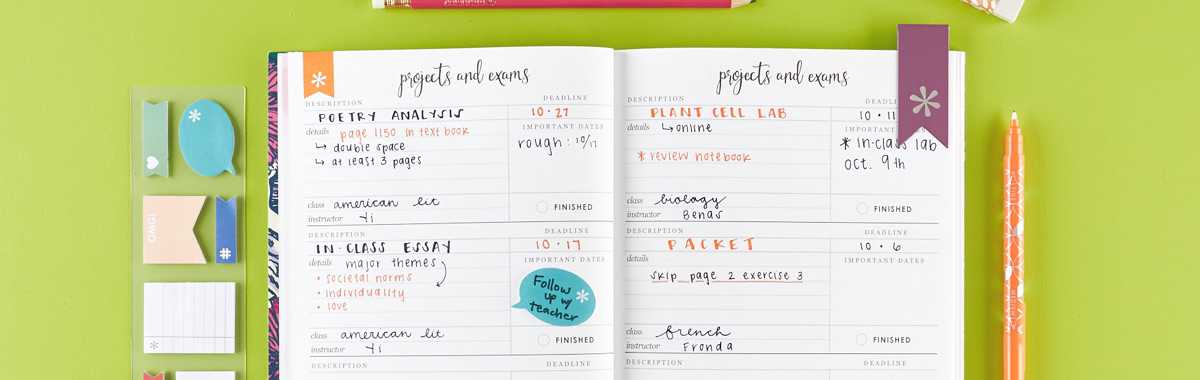 projects and exams
DESCRIPTION DEADLINE
POETRY ANALYSIS 10 · 27
details page 1150 in textbook IMPORTANT DATES
↳ double space rough: 10/17
↳ at least 3 pages
class american lit FINISHED
instructor Yi
DESCRIPTION DEADLINE
IN-CLASS ESSAY 10 · 17
details major themes IMPORTANT DATES
• societal norms
• individuality
• love
Follow
up w/
teacher
class american lit FINISHED
instructor Yi
DESCRIPTION DEADLINE
projects and exams
DESCRIPTION
PLANT CELL LAB 10 · 11
details ↳ online IMPORTANT DATES
* in-class lab
* review notebook oct. 9th
class biology FINISHED
instructor Benas
DESCRIPTION DEADLINE
PACKET 10 · 6
details IMPORTANT DATES
skip page 2 exercise 3
class french FINISHED
instructor Fronda
DESCRIPTION DEADLINE
OMG!
#